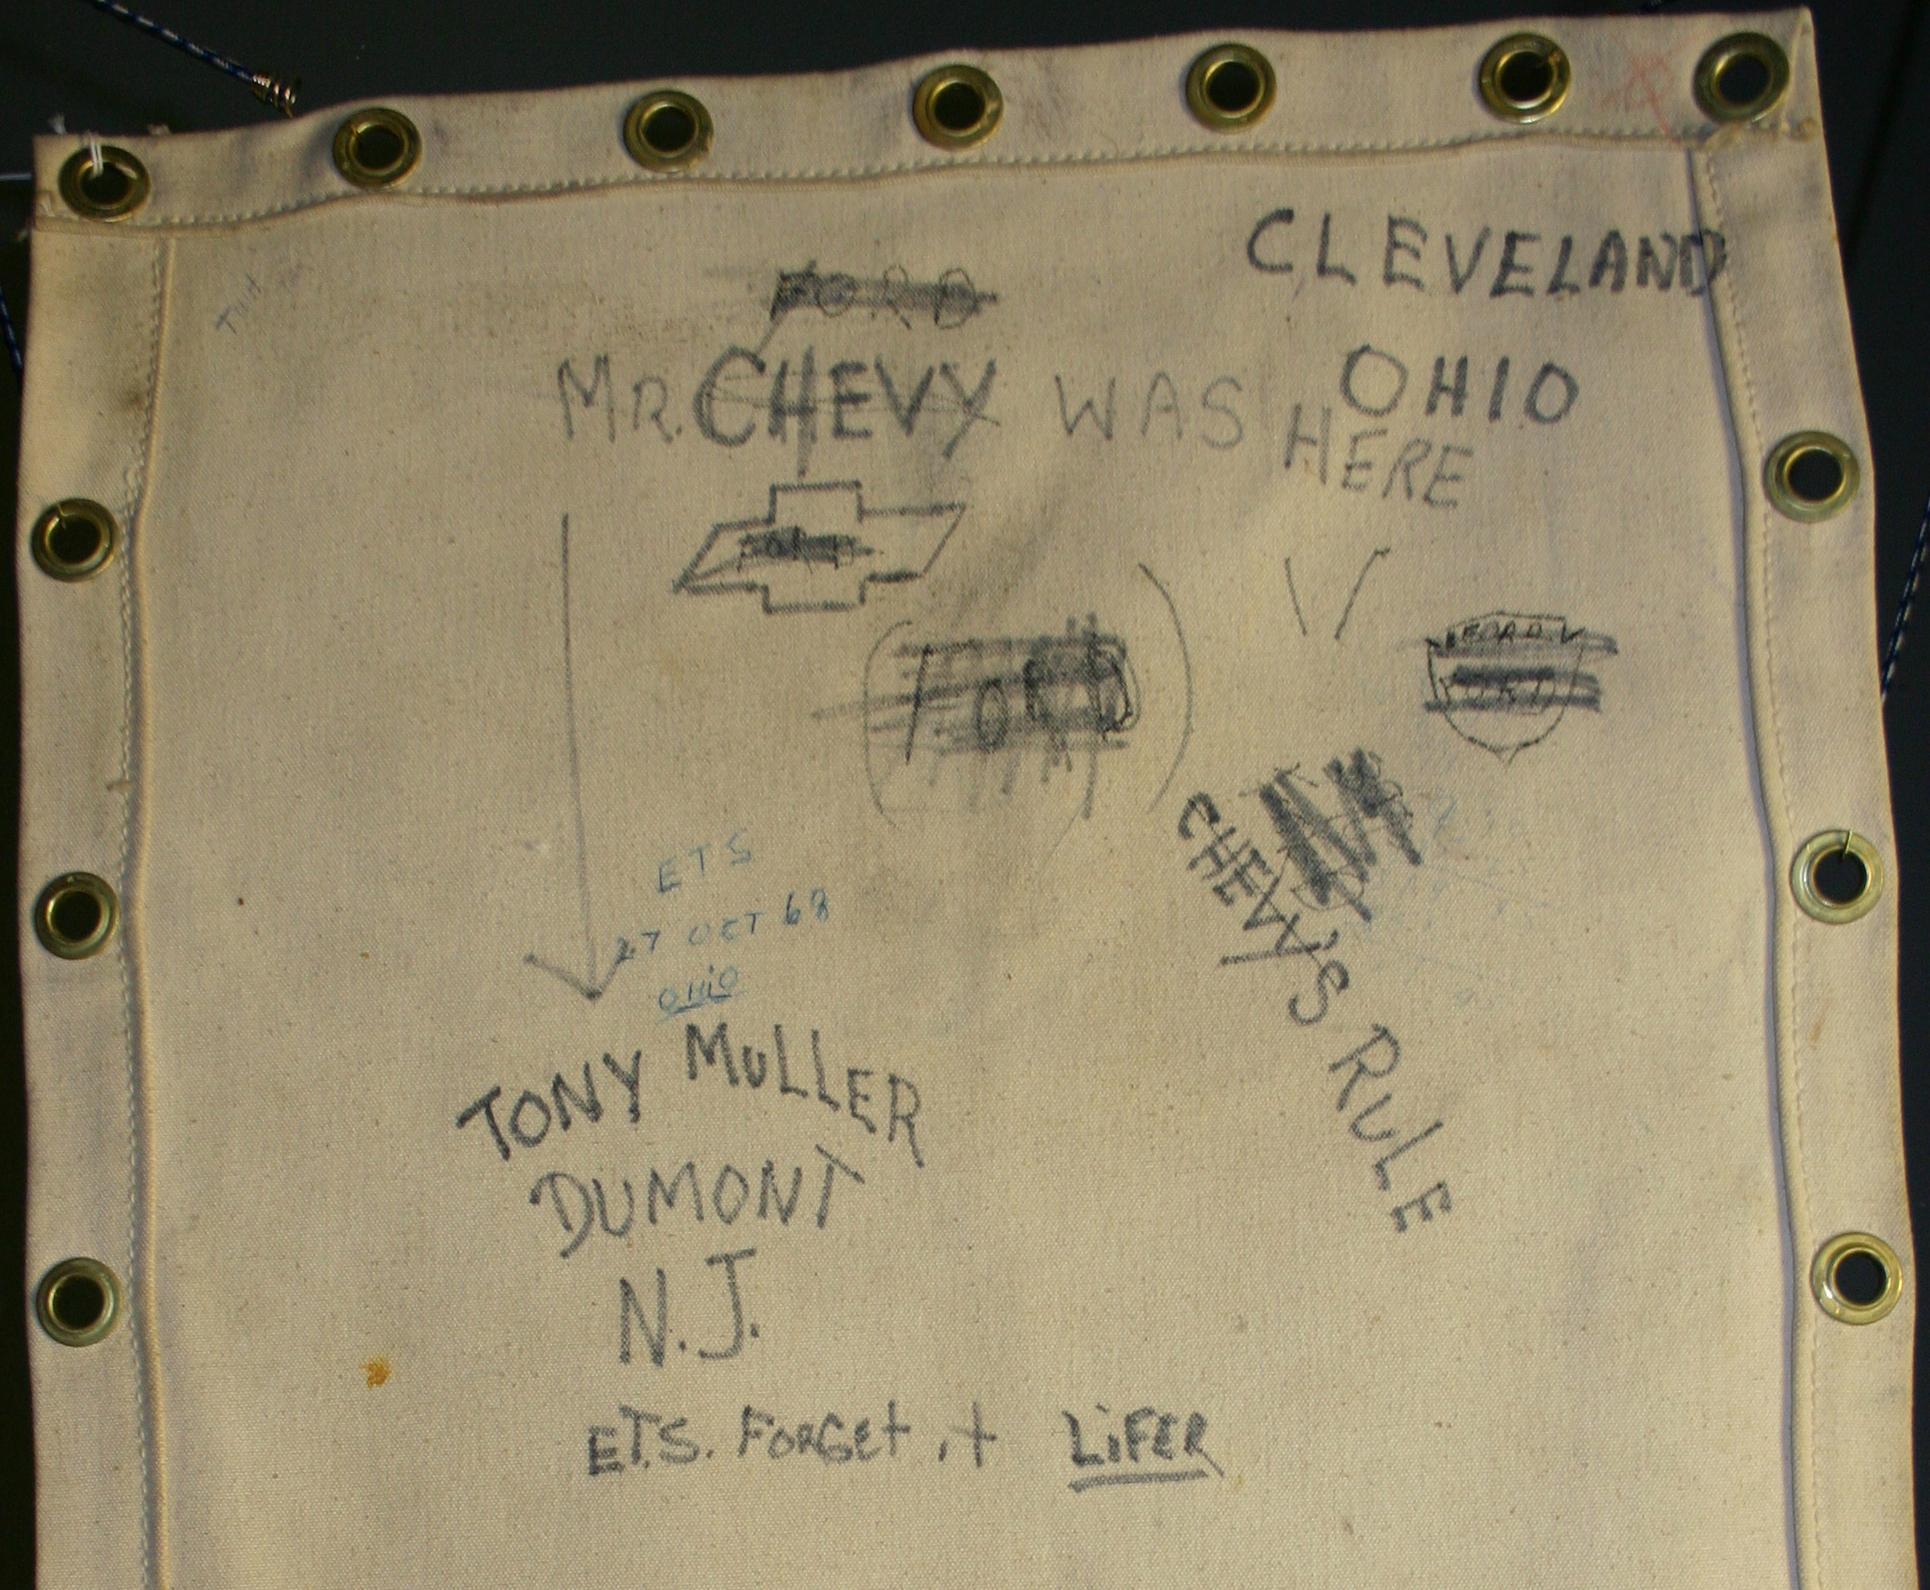 CLEVELAND
OHIO
FORD
MR. CHEVY WAS HERE
FORD
FORD
FORD
CHEVY'S RULE
ETS
27 OCT 68
OHiO
TONY MULLER
DUMONT
N.J.
E.T.S. FORGEt it LiFER